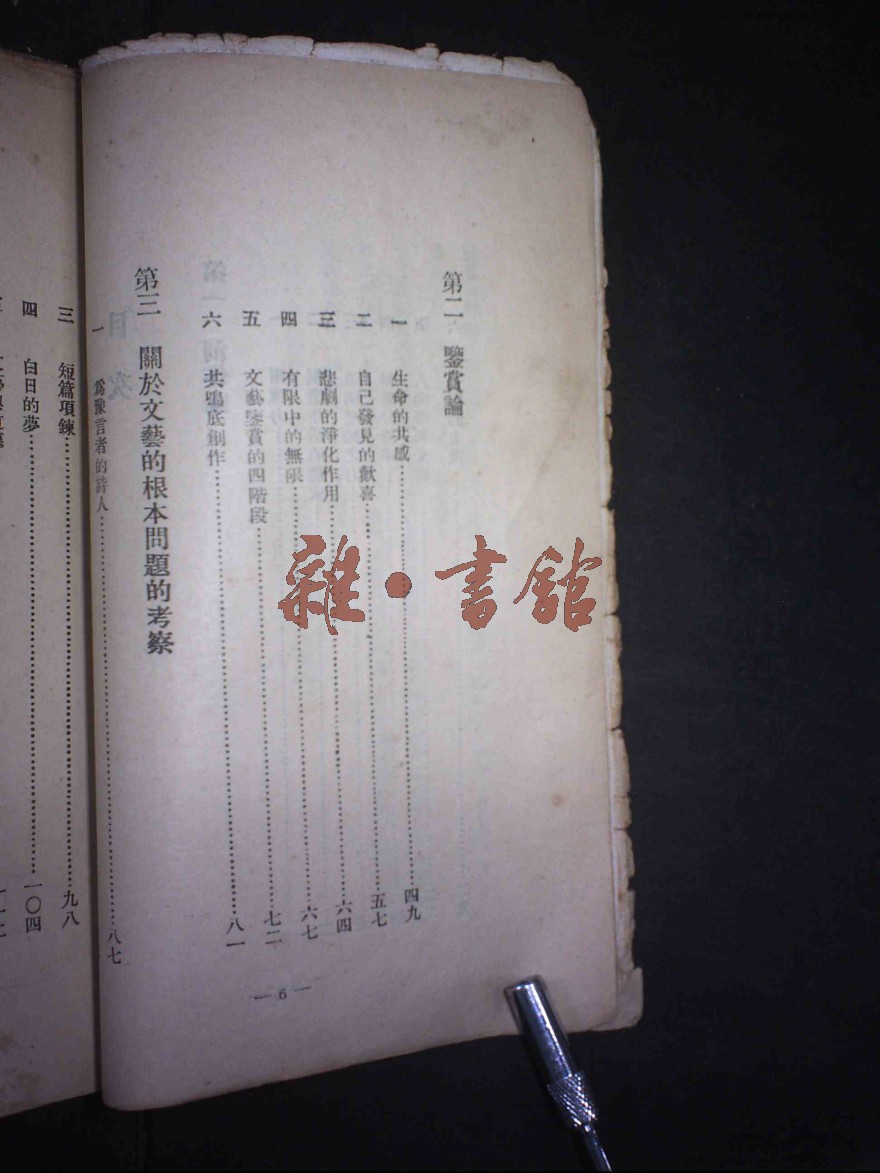 第二 鑒賞論
一 生命的共感……四九
二 自己發見的歡喜……五七
三 悲劇的淨化作用……六四
四 有限中的無限……六七
五 文藝鑒賞的四階段……七二
六 共鳴底創作……八一
第三 關於文藝的根本問題的考察
一 爲豫言者的詩人……八七
— 6 —
三 短篇項鍊……九八
四 白日的夢……一〇四
雜·書館